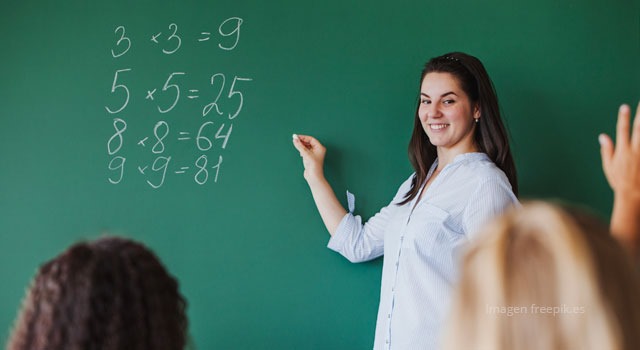 3 × 3 = 9
5 × 5 = 25
8 × 8 = 64
9 × 9 = 81
Imagen freepik.es